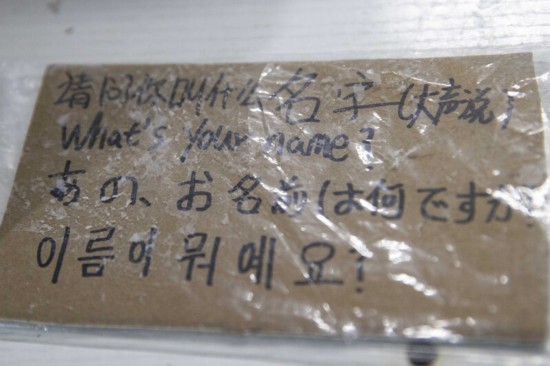 请问你叫什么名字（大声说）
What's your name?
あの、お名前は何ですか?
이름이 뭐예요?